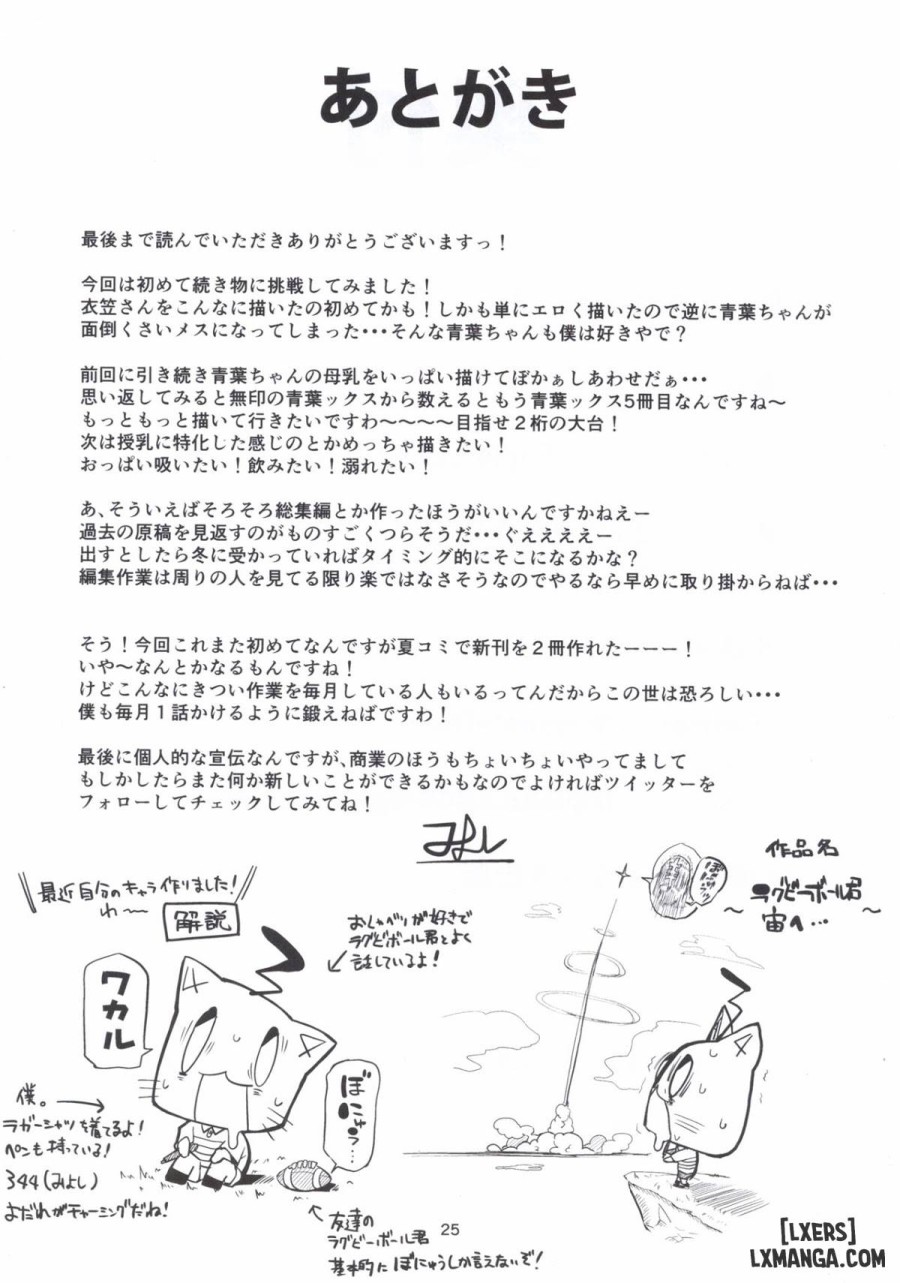 あとがき
最後まで読んでいただきありがとうございますっ！
今回は初めて続き物に挑戦してみました！
衣笠さんをこんなに描いたの初めてかも！しかも単にエロく描いたので逆に青葉ちゃんが
面倒くさいメスになってしまった・・・そんな青葉ちゃんも僕は好きやで？
前回に引き続き青葉ちゃんの母乳をいっぱい描けてぼかぁしあわせだぁ・・・
思い返してみると無印の青葉ックスから数えるともう青葉ックス5冊目なんですね～
もっともっと描いて行きたいですわ～～～～目指せ２桁の大台！
次は授乳に特化した感じのとかめっちゃ描きたい！
おっぱい吸いたい！飲みたい！溺れたい！
あ、そういえばそろそろ総集編とか作ったほうがいいんですかねえー
過去の原稿を見返すのがものすごくつらそうだ・・・ぐえええええー
出すとしたら冬に受かっていればタイミング的にそこになるかな？
編集作業は周りの人を見てる限り楽ではなさそうなのでやるなら早めに取り掛からねば・・・
そう！今回これまた初めてなんですが夏コミで新刊を２冊作れたーーー！
いや～なんとかなるもんですね！
けどこんなにきつい作業を毎月している人もいるってんだからこの世は恐ろしい・・・
僕も毎月１話かけるように鍛えねばですわ！
最後に個人的な宣伝なんですが、商業のほうもちょいちょいやってまして
もしかしたらまた何か新しいことができるかもなのでよければツイッターを
フォローしてチェックしてみてね！
みよし
最近自分のキャラ作りました！
わ～
解説
おしゃべりが好きで
ラグビーボール君とよく
話しているよ！
ワカル
ぼにゅっ…
僕。
ラガーシャツを着てるよ！
ペンも持っている！
344(みよし)
よだれがチャーミングだね！
友達の
ラグビーボール君
基本的にぼにゅうしか言えないぞ！
作品名
～ラグビーボール君
宙へ…～
25
[LXERS]
LXMANGA.COM